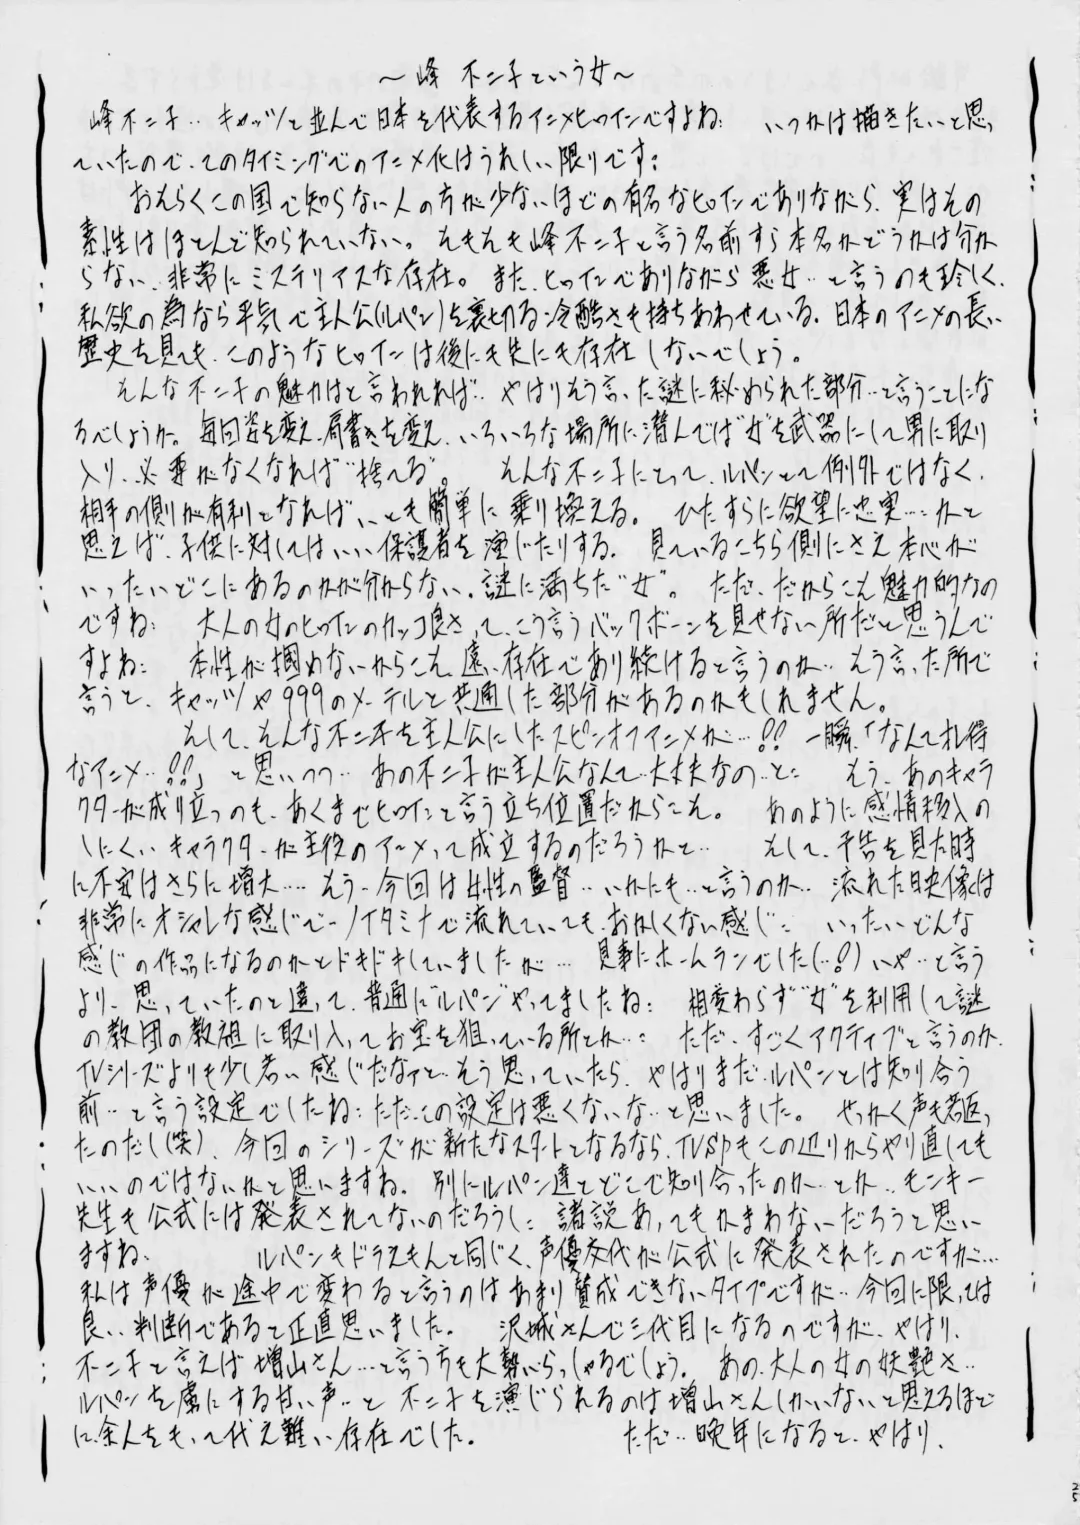 ～峰 不二子という女～
峰不二子‥キャッツと並んで日本を代表するアニメヒロインですよね‥ いつかは描きたいと思っ
ていたので、このタイミングでのアニメ化はうれしい限りです‥
おそらくこの国で知らない人の方が少ないほどの有名なヒロインでありながら、実はその
素性はほとんど知られていない。そもそも峰不二子と言う名前すら本名かどうかは分か
らない、非常にミステリアスな存在。また、ヒロインでありながら悪女‥と言うのも珍しく、
私欲の為なら平気で主人公(ルパン)を裏切る冷酷さも持ちあわせている。日本のアニメの長い
歴史を見ても、このようなヒロインは後にも先にも存在しないでしょう。
そんな不二子の魅力はと言われれば‥やはりそう言った謎に秘められた部分‥と言うことにな
るでしょうか。毎回姿を変え、肩書きを変え、いろいろな場所に潜んでは“女”を武器にして男に取り
入り、必要がなくなれば“捨てる”。 そんな不二子にとって、ルパンとて例外ではなく、
相手の側が有利となれば、いとも簡単に乗り換える。 ひたすらに欲望に忠実…かと
思えば、子供に対してはいい保護者を演じたりする。 見ているこちら側にさえ本心が
いったいどこにあるのかが分からない、謎に満ちた“女”。 ただ、だからこそ魅力的なの
ですね‥ 大人の女のヒロインのカッコ良さって、こう言うバックボーンを見せない所だと思うんで
すよね‥ 本性が掴めないからこそ、遠い存在であり続けると言うのか‥そう言った所で
言うと、キャッツや999のメーテルと共通した部分があるのかもしれません。
そして、そんな不二子を主人公にしたスピンオフアニメが…!! 一瞬、「なんてお得
なアニメ‥!!」と思いつつ‥あの不二子が主人公なんて‥大丈夫なの‥と‥ もう、あのキャラ
クターが成り立つのも、あくまでヒロインと言う立ち位置だからこそ。 あのように感情移入の
しにくいキャラクターが主役のアニメって成立するのだろうかと‥ そして、予告を見た時
に不安はさらに増大…もう、今回は女性の監督‥いかにも‥と言うのか‥流れた映像は
非常にオシャレな感じで…ノイタミナで流れていてもおかしくない感じ‥ いったいどんな
感じの作品になるのかとドキドキしていましたが… 見事にホームランでした(…!) いや‥と言う
より、思っていたのと違って、普通に“ルパン”やってましたね‥ 相変わらず“女”を利用して謎
の教団の教祖に取り入ってお宝を狙っている所とか…‥ ただ、すごくアクティブと言うのか、
TVシリーズよりも少し若い感じだなァと‥そう思っていたら、やはりまだルパンとは知り合う
前‥と言う設定でしたね‥ただ、この設定は悪くないな‥と思いました。 せっかく声も若返っ
たのだし(笑)、今回のシリーズが新たなスタートとなるなら、TVSPもこの辺りからやり直しても
いいのではないかと思いますね。別にルパン達とどこで知り合ったのか‥とか‥モンキー
先生も公式には発表されてないのだろうし‥諸説あってもかまわないだろうと思い
ますね。 ルパンもドラえもんと同じく、声優交代が公式に発表されたのですが…
私は声優が途中で変わると言うのはあまり賛成できないタイプですが‥今回に限っては
良い判断であると正直思いました。 沢城さんで三代目になるのですが、やはり、
不二子と言えば増山さん…と言う方も大勢いらっしゃるでしょう。あの、大人の女の妖艶さ‥
ルパンを虜にする甘い声‥と 不二子を演じられるのは増山さんしかいないと思えるほど
に、余人をもって代え難い存在でした。 ただ‥晩年になると、やはり、